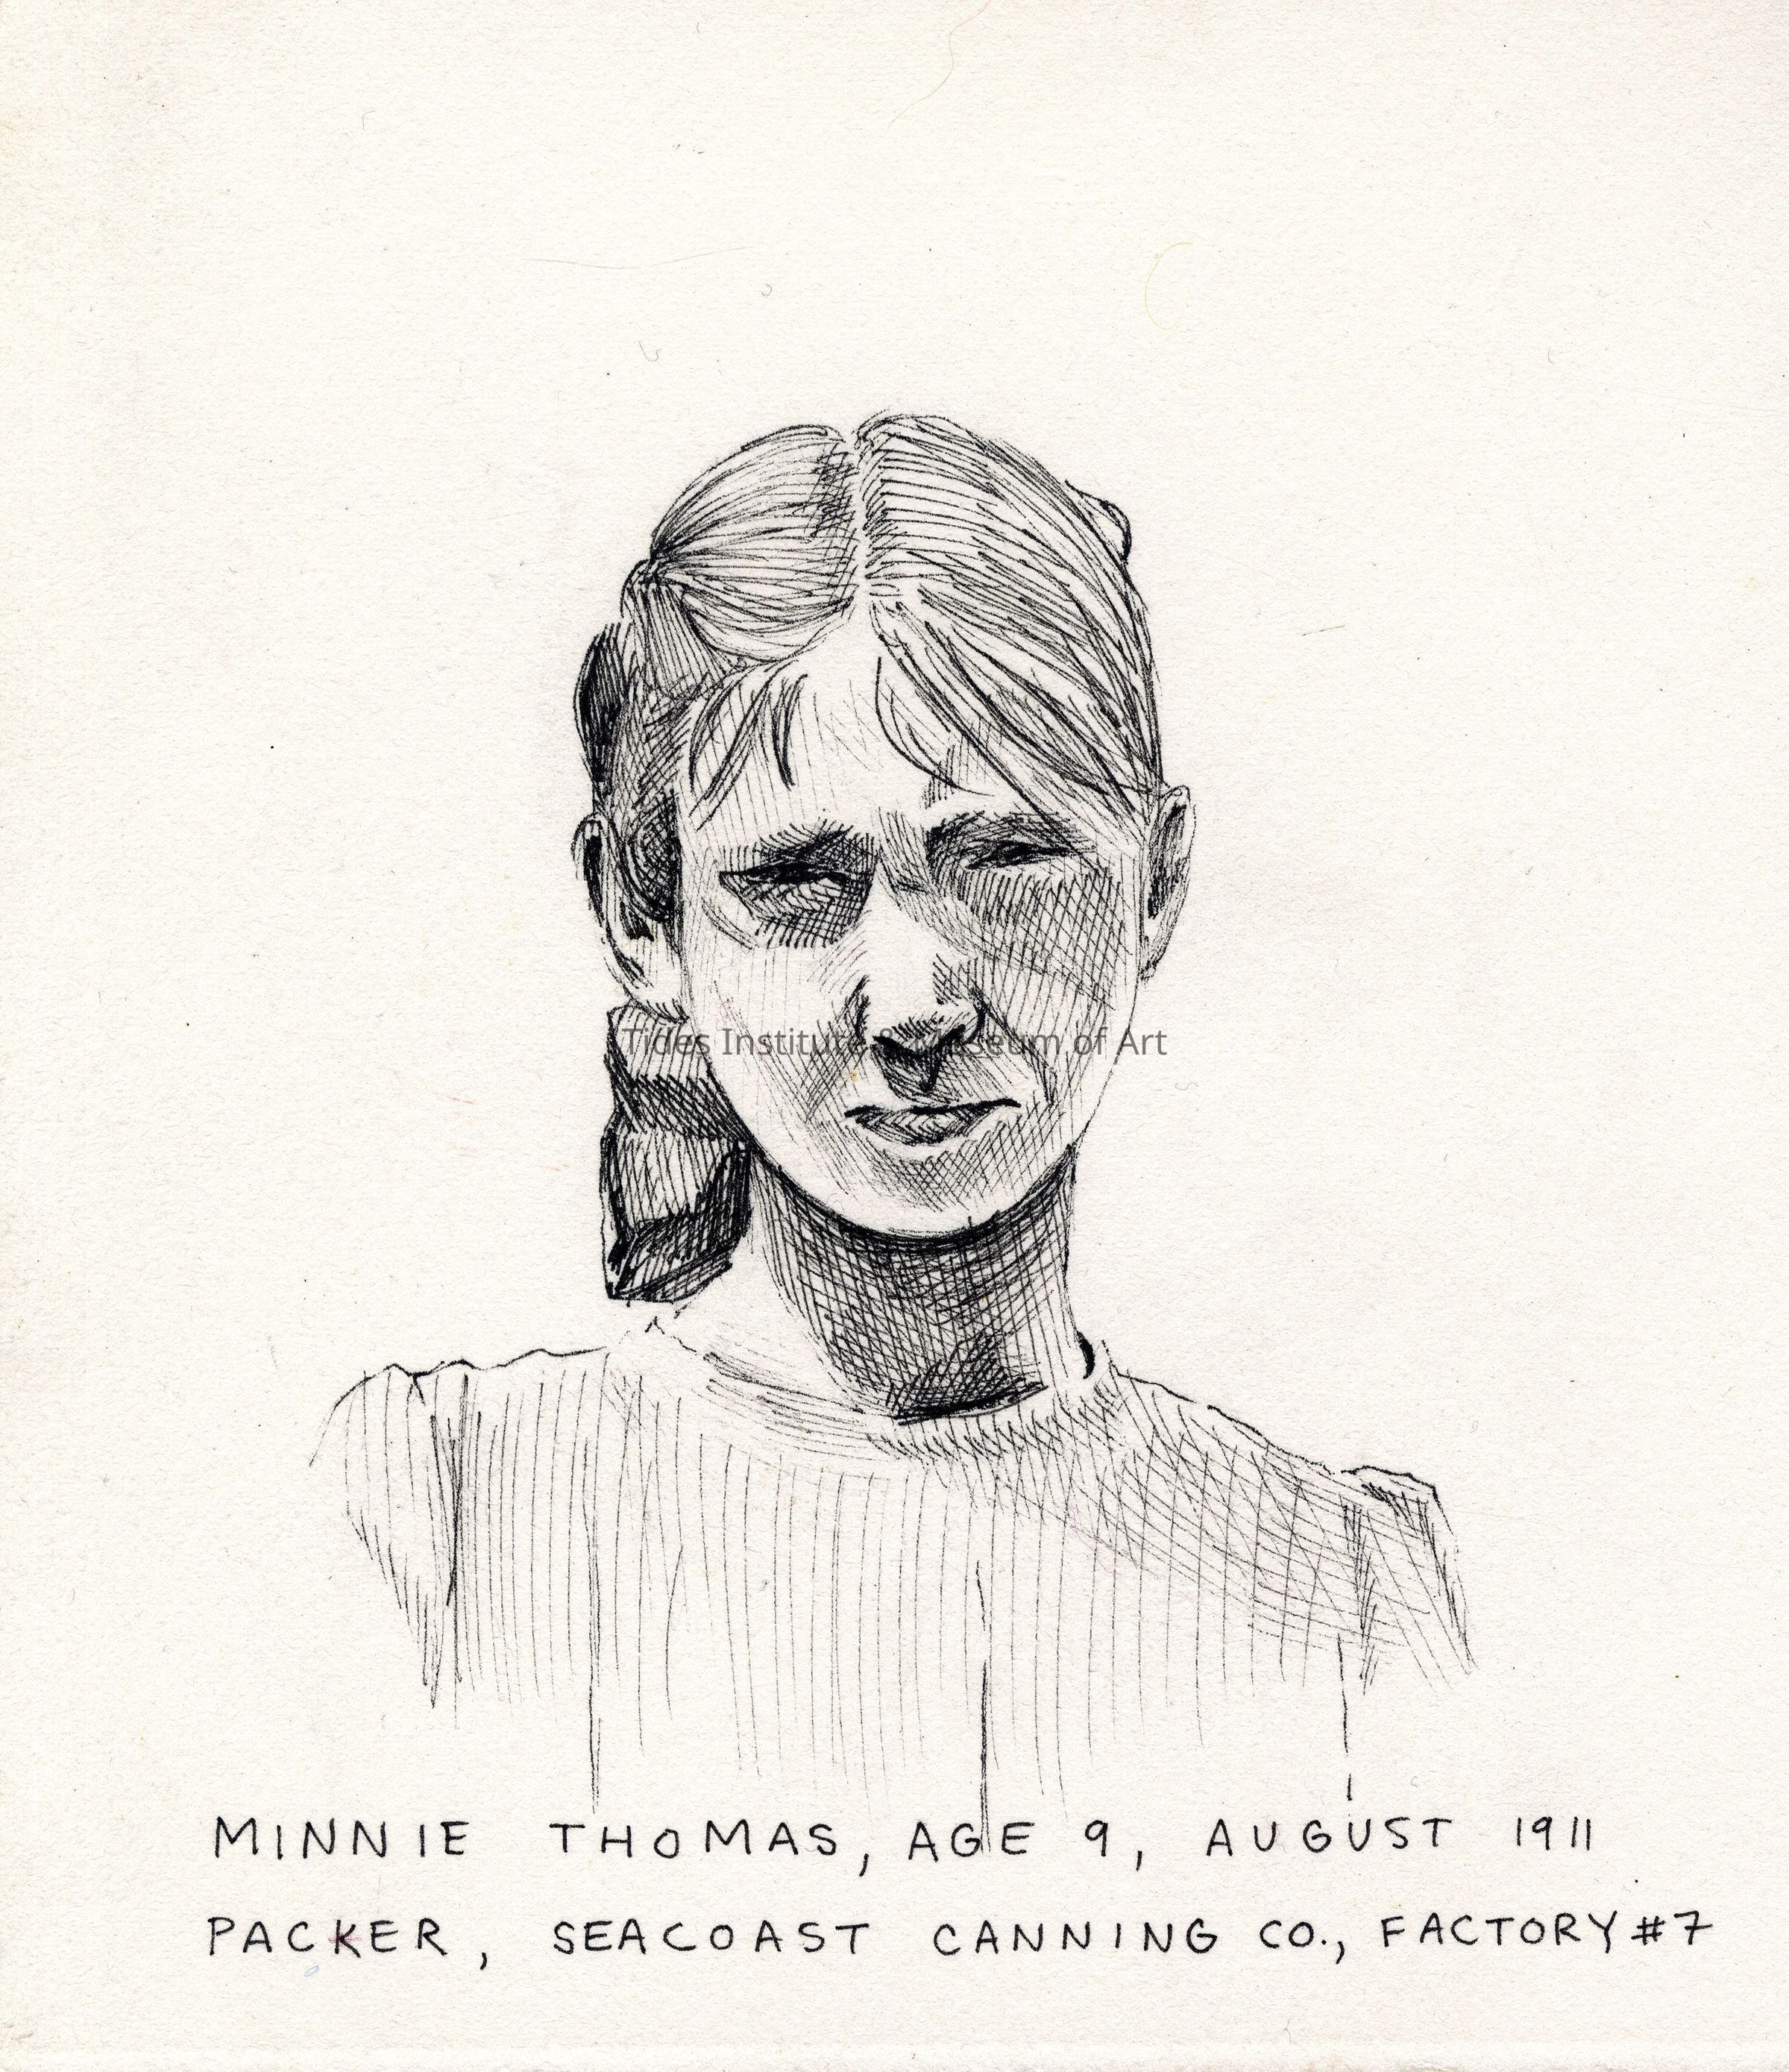 Tides Institute & Museum of Art
MINNIE THOMAS, AGE 9, AUGUST 1911
PACKER, SEACOAST CANNING CO., FACTORY #7